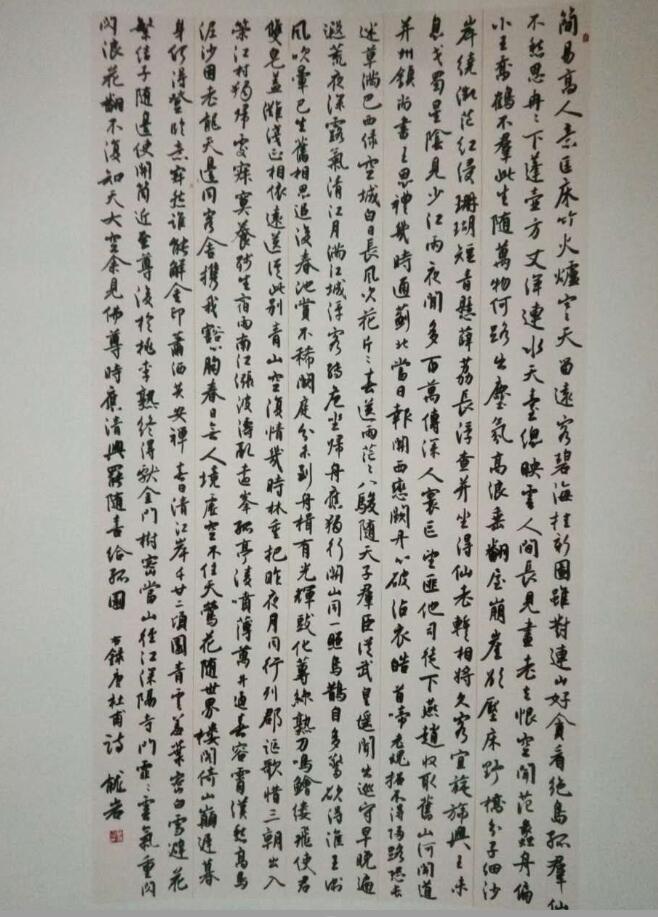 簡易高人意匡床竹火爐寒天留遠客碧海挂新圖雖對連山好貪看絕島孤群仙
不愁思冉冉下蓬壺方丈渾連水天臺總映雲人間長見畫老去恨空聞范蠡舟偏
小王喬鶴不羣此生隨萬物何路出塵氛高浪垂翻屋崩崖欲壓床野橋分子細沙
岸繞微茫紅浸珊瑚短青懸薜荔長浮查并坐得仙老暫相將久客宜旋旆興王未
息戈蜀星陰見少江雨夜聞多百萬傳深入寰區望匪他司徒下燕趙收取舊山河聞道
并州鎮尚書王思禮幾時通薊北當日報關西戀闕丹心破沾衣皓首啼老魂招不得歸路恐長
迷草滿巴西綠空城白日長風吹花片片春送雨茫茫八駿隨天子羣臣從武皇遙聞出巡守早晚遍
遐荒夜深露氣清江月滿江城浮客轉危坐歸舟應獨行關山同一照烏鵲自多驚欲得淮王術
風吹暈已生舊相思追後春池賞不稀闕庭分未到舟楫有光輝豉化蓴絲熟刀鳴鱠縷飛使君
雙皂蓋灘淺正相依遠送從此別青山空復情幾時杯重把昨夜月同行列郡謳歌惜三朝出入
榮江村獨歸處寂寞養殘生宿雨南江漲波濤亂遠峯孤亭凌噴薄萬井逼舂容霄漢愁高鳥
泥沙困老龍天邊同客舍攜我豁心胸春日無人境虛空不住天鶯花隨世界樓閣倚山巔遲暮
身何得登臨意寂然誰能解金印蕭洒共安禪春日清江岸千甘二頃園青雲羞葉密白雪避花
繁結子隨邊使開筒近至尊後於桃李熟終得獻金門樹密當山徑江深隔寺門霏霏雲氣重閃
閃浪花翻不復知天大空余見佛尊時應清興罷隨喜給孤園 右錄唐杜甫詩